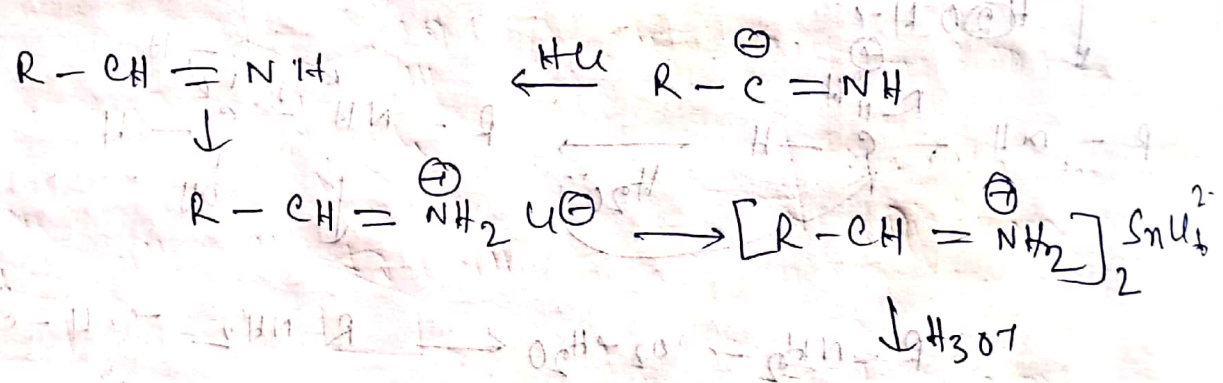 R - CH = NH ← HCl R - C⊖ = NH
↓
R - CH = N⊕H₂ Cl⊖ → [R - CH = N⊕H₂]₂ SnCl₆²⁻
↓ H₃O⁺